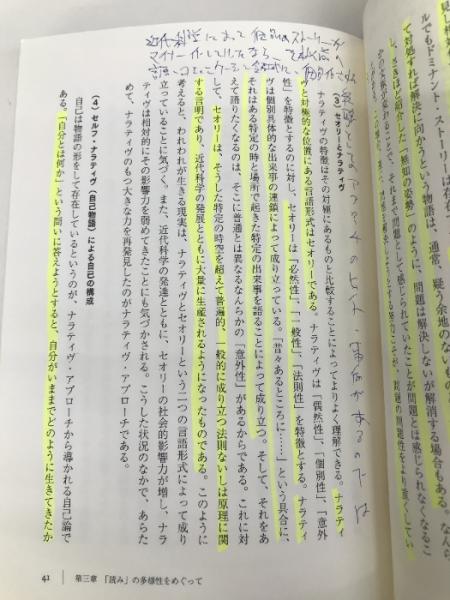 ルでもドミナント・ストーリーは
し、さきほど紹介した「無知の姿勢」のように、問題は解決しないが解消する場合もある。なんら
て対処すれば解決に向かうという物語は、通常、疑う余地のない
(3) セオリーとナラティヴ
ナラティヴの特徴はその対極にあるものと比較することによってよりよく理解できる。ナラティ
ヴと対極的な位置にある言語形式はセオリーである。ナラティヴは「偶然性」、「個別性」、「意外
性」を特徴とするのに対し、セオリーは「必然性」、「一般性」、「法則性」を特徴とする。ナラティ
ヴは個別具体的な出来事の連鎖によって成り立っている。「昔々あるところに……」という具合に、
それはある特定の時と場所で起きた特定の出来事を語ることによって成り立つ。そして、それをあ
えて語りたくなるのは、そこに普通とは異なるなんらかの「意外性」があるからである。これに対
して、セオリーは、そうした特定の時空を超えて普遍的、一般的に成り立つ法則ないしは原理に関
する言明であり、近代科学の発展とともに大量に生産されるようになったものである。このように
考えると、われわれが生きる現実は、ナラティヴとセオリーという二つの言語形式によって成り
立っていることに気づく。また、近代科学の発達とともに、セオリーの社会的影響力が増し、ナラ
ティヴは相対的にその影響力を弱めてきたことにも気づかされる。こうした状況のなかで、あらた
めて、ナラティヴのもつ大きな力を再発見したのがナラティヴ・アプローチである。
(4) セルフ・ナラティヴ(自己物語)による自己の構成
自己は物語の形をして存在しているというのが、ナラティヴ・アプローチから導かれる自己論で
ある。「自分とは何か」という問いに答えようとすると、自分がいままでどのように生きてきたか
41
第三章 「読み」の多様性をめぐって